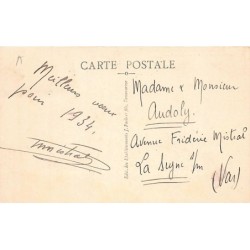 CARTE POSTALE
Meilleurs vœux
pour
1934.
Madame & Monsieur
Audoly.
Avenue Frédéric Mistral
La Seyne s/m
(Var)